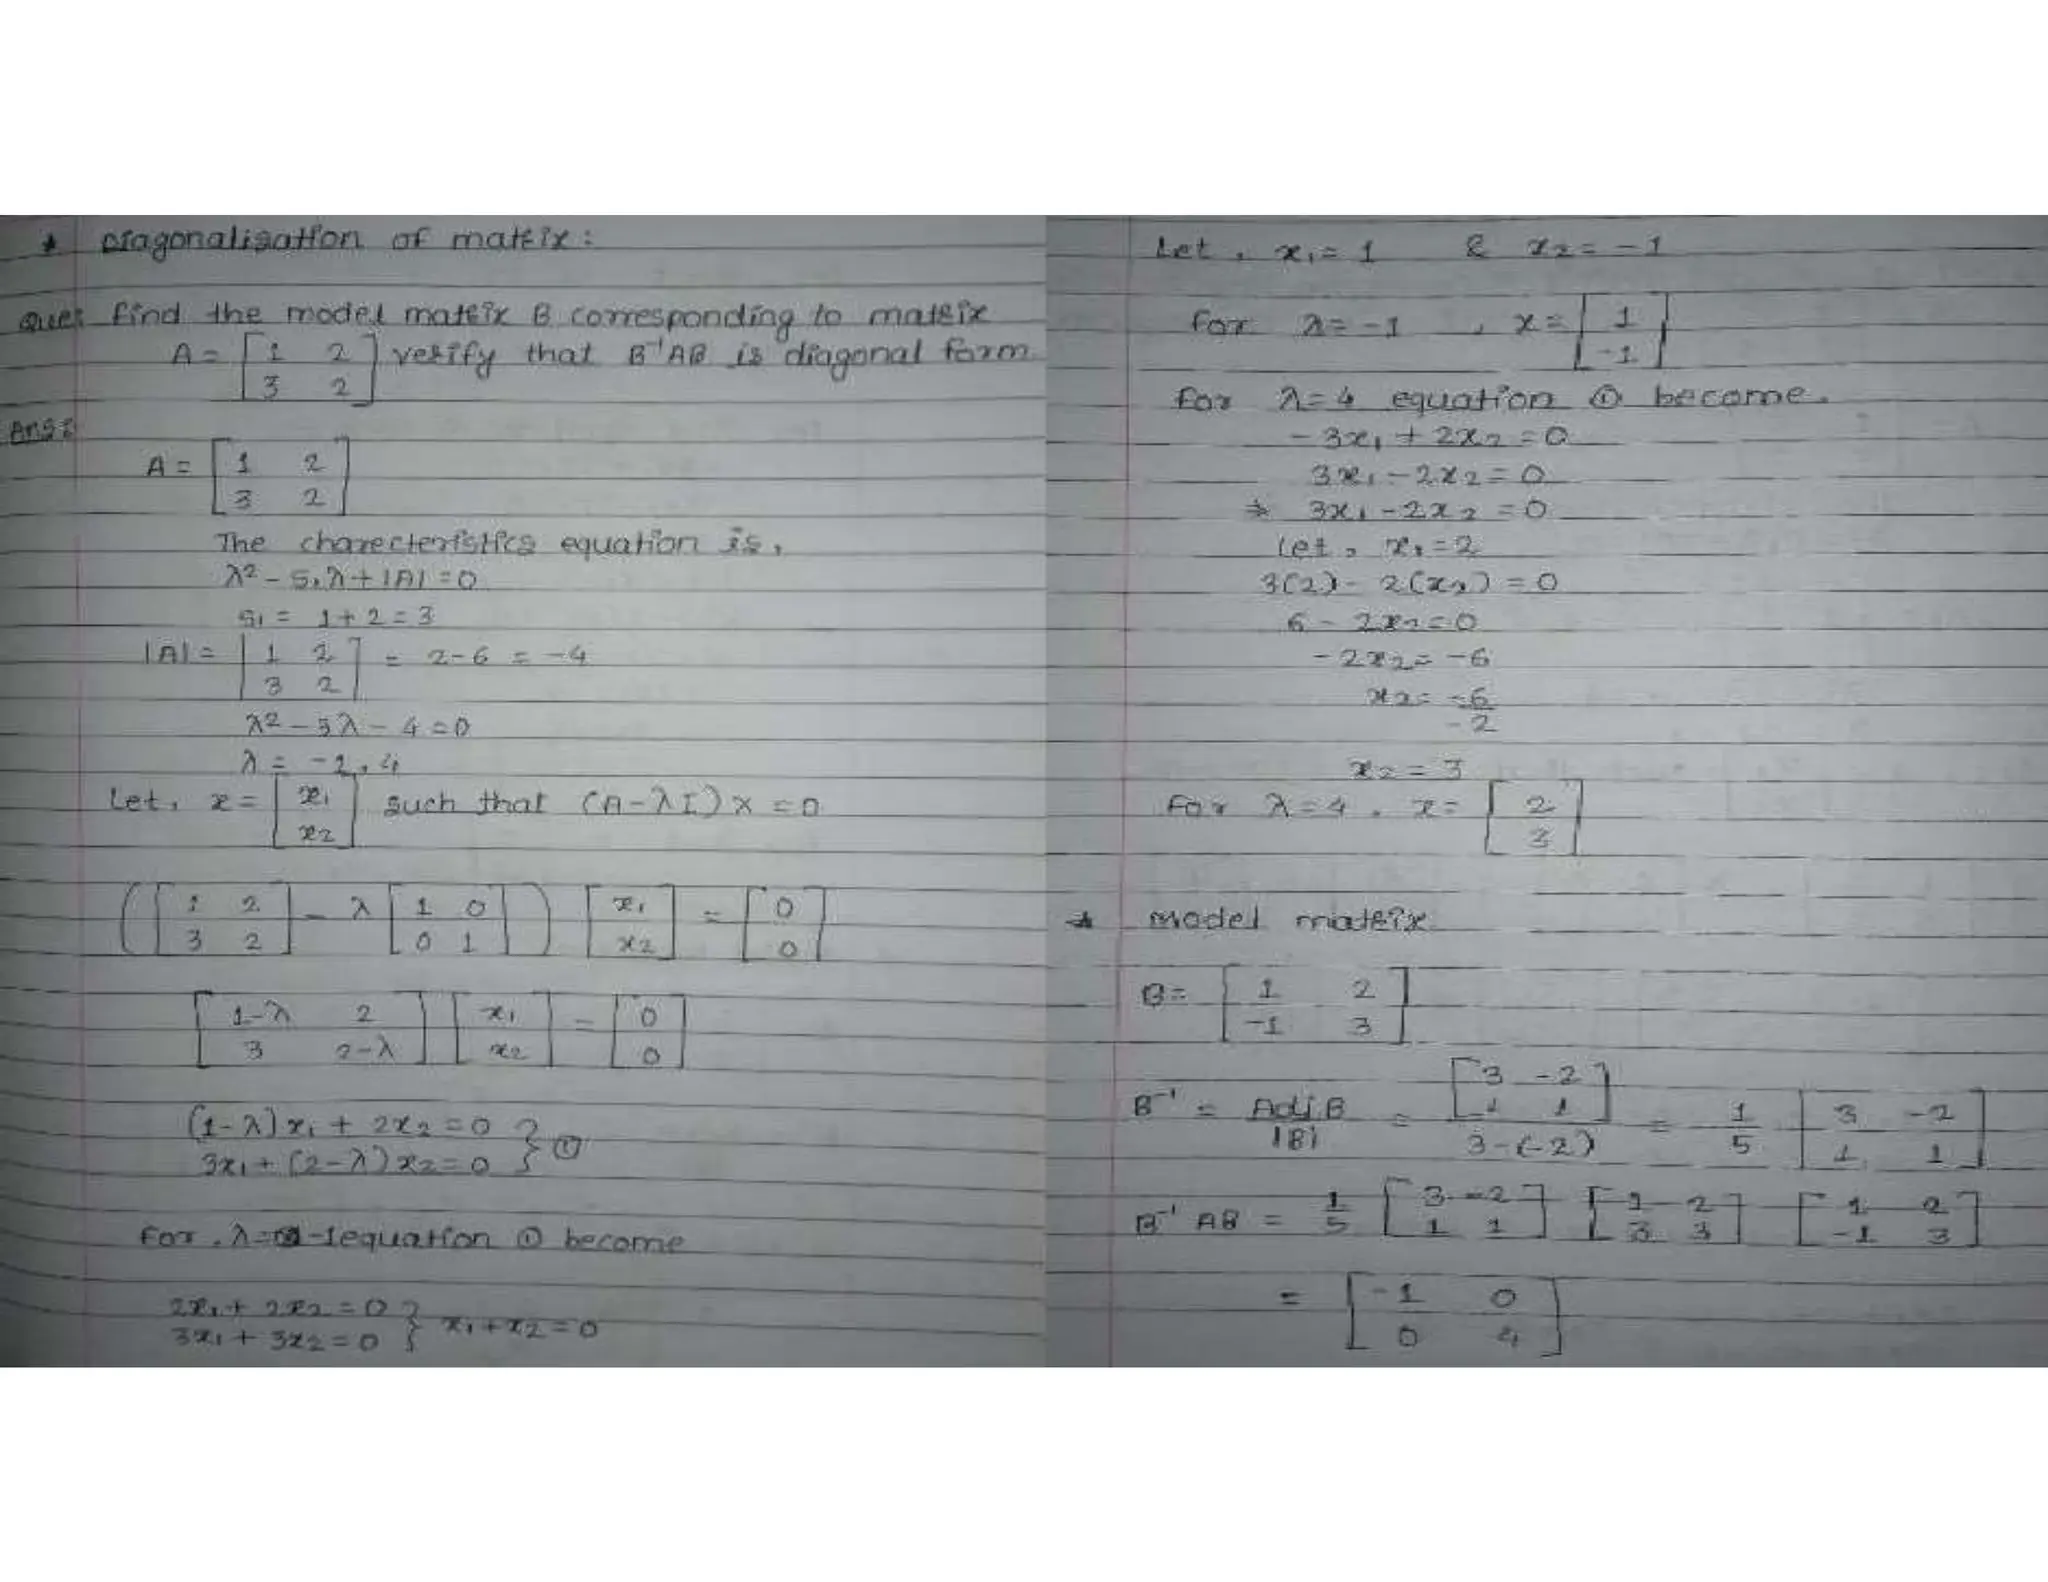 * Diagonalisation of matrix :
Ques find the model matrix B corresponding to matrix
A = [ 1 2 ] verify that B⁻¹AB is diagonal form
[ 3 2 ]
Ans:
A = [ 1 2 ]
[ 3 2 ]
The charecteristics equation is,
λ2 - S₁λ + |A| = 0
S₁ = 1 + 2 = 3
|A| = | 1 2 | = 2-6 = -4
| 3 2 |
λ2 - 3λ - 4 = 0
λ = -1, 4
Let, x = [ x₁ ] such that (A-λI) x = 0
[ x2 ]
( [ 1 2 ] - λ [ 1 0 ] ) [ x₁ ] = [ 0 ]
[ 3 2 ] [ 0 1 ] [ x2 ] [ 0 ]
[ 1-λ 2 ] [ x₁ ] = [ 0 ]
[ 3 2-λ ] [ x2 ] [ 0 ]
(1-λ) x₁ + 2x2 = 0 } ①
3x₁ + (2-λ) x2 = 0
For, λ = -1 equation ① become
2x₁ + 2x2 = 0 } x₁ + x2 = 0
3x₁ + 3x2 = 0
Let, x₁ = 1 & x2 = -1
For λ = -1, x = [ 1 ]
[ -1 ]
For λ = 4 equation ① become.
- 3x₁ + 2x2 = 0
3x₁ - 2x2 = 0
⇒ 3x₁ - 2x2 = 0
let, x₁ = 2
3(2) - 2(x2) = 0
6 - 2x2 = 0
- 2x2 = -6
x2 = -6
-2
x2 = 3
For λ = 4, x = [ 2 ]
[ 3 ]
* Model matrix
B = [ 1 2 ]
[ -1 3 ]
B⁻¹ = Adj.B / |B| = [ 3 -2 ; 1 1 ] / 3-(-2) = 1/5 [ 3 -2 ]
[ 1 1 ]
B⁻¹ AB = 1/5 [ 3 -2 ] [ 1 2 ] [ 1 2 ]
[ 1 1 ] [ 3 3 ] [ -1 3 ]
= [ -1 0 ]
[ 0 4 ]